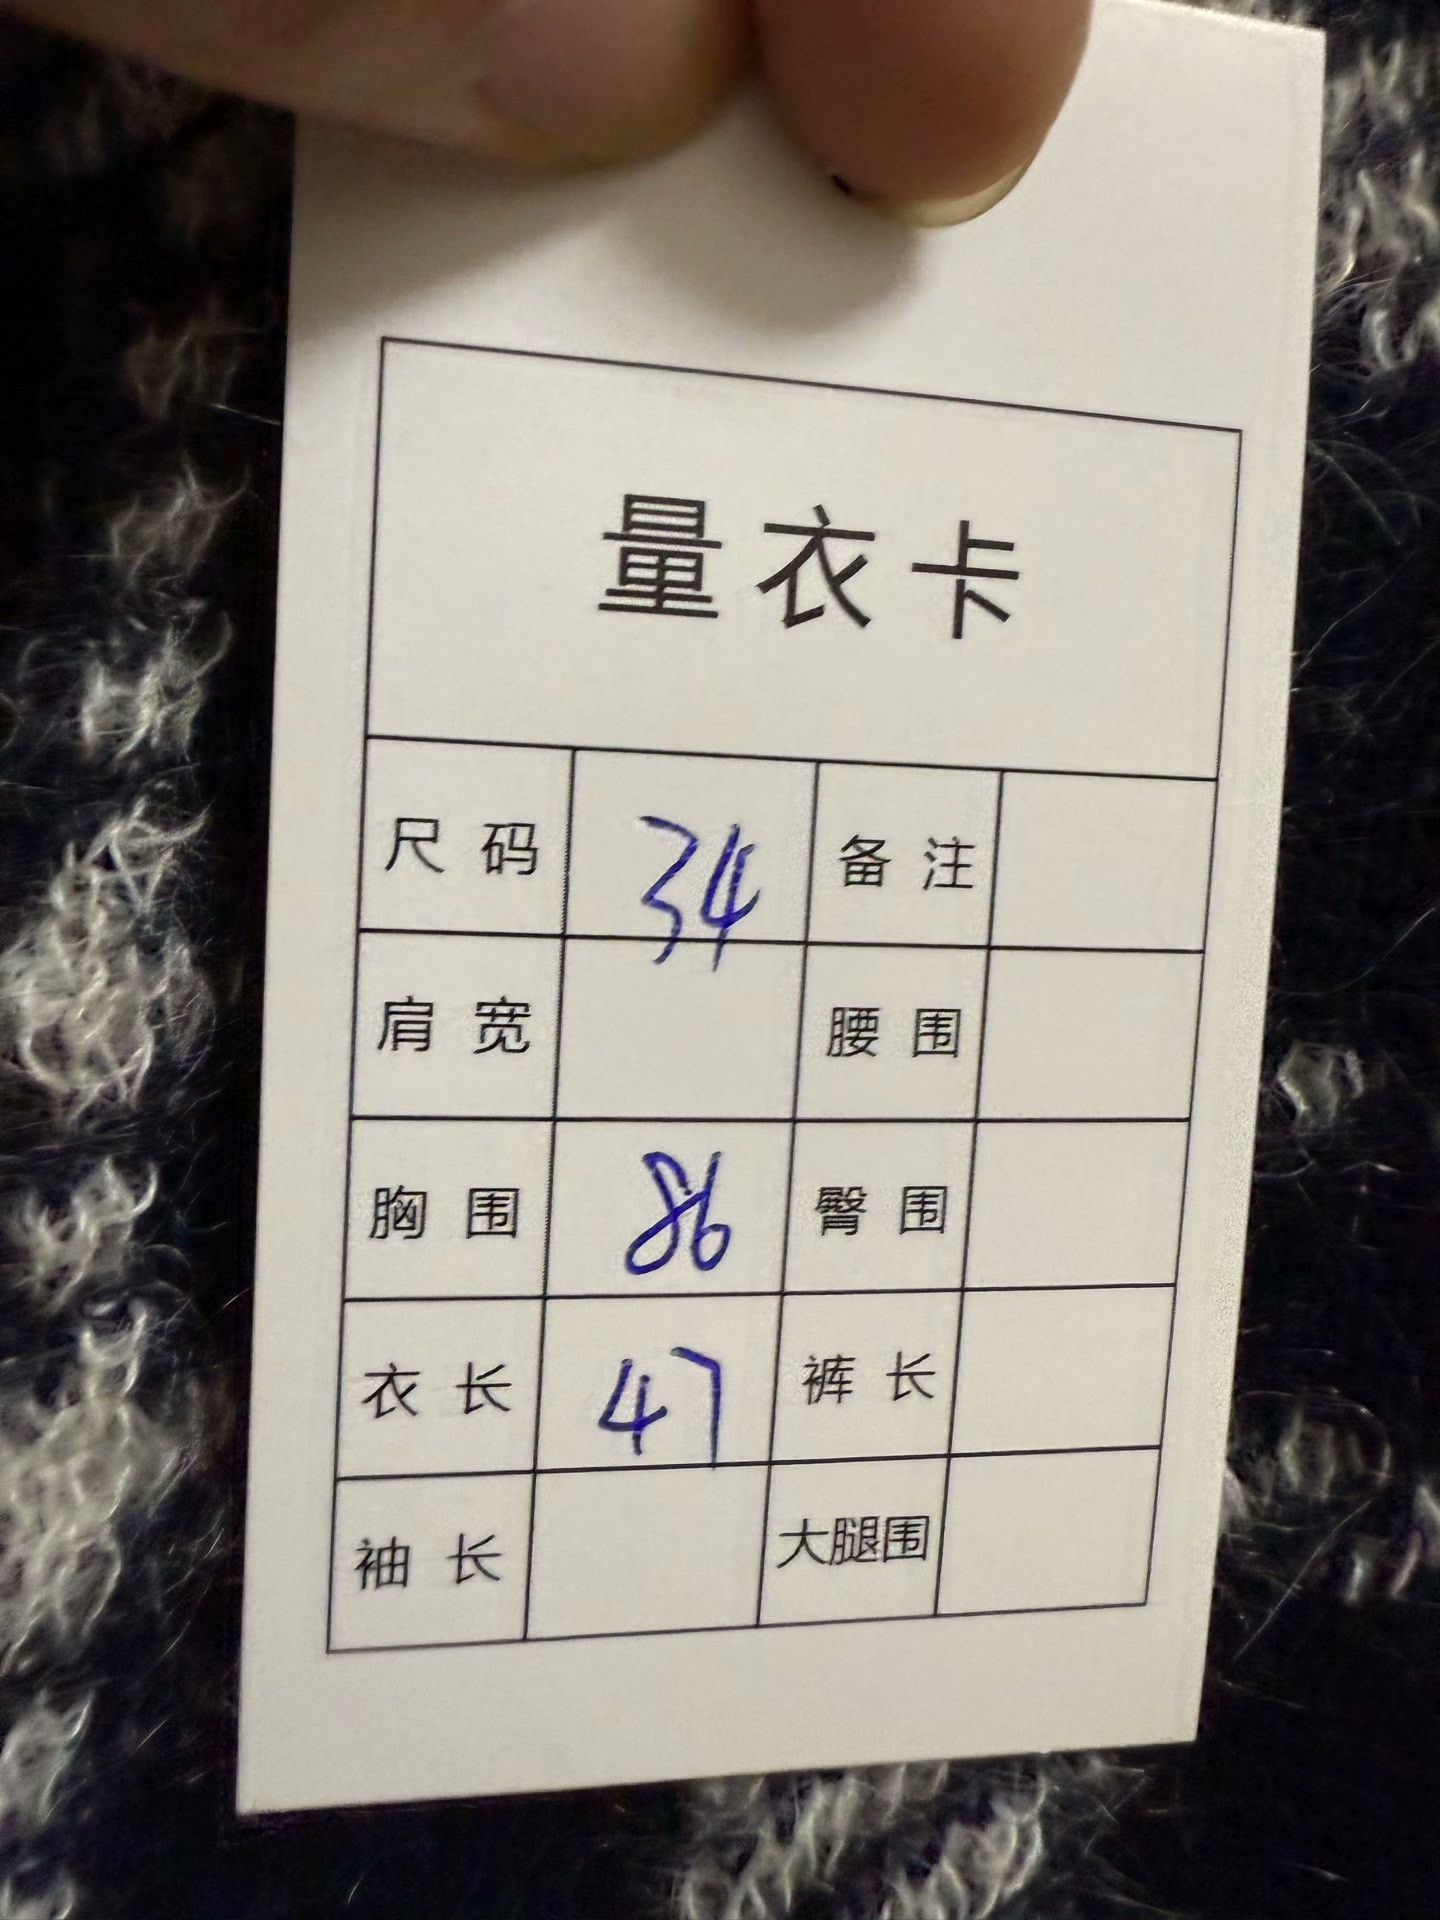 量衣卡
尺码 34 备注
肩宽 腰围
胸围 86 臀围
衣长 47 裤长
袖长 大腿围